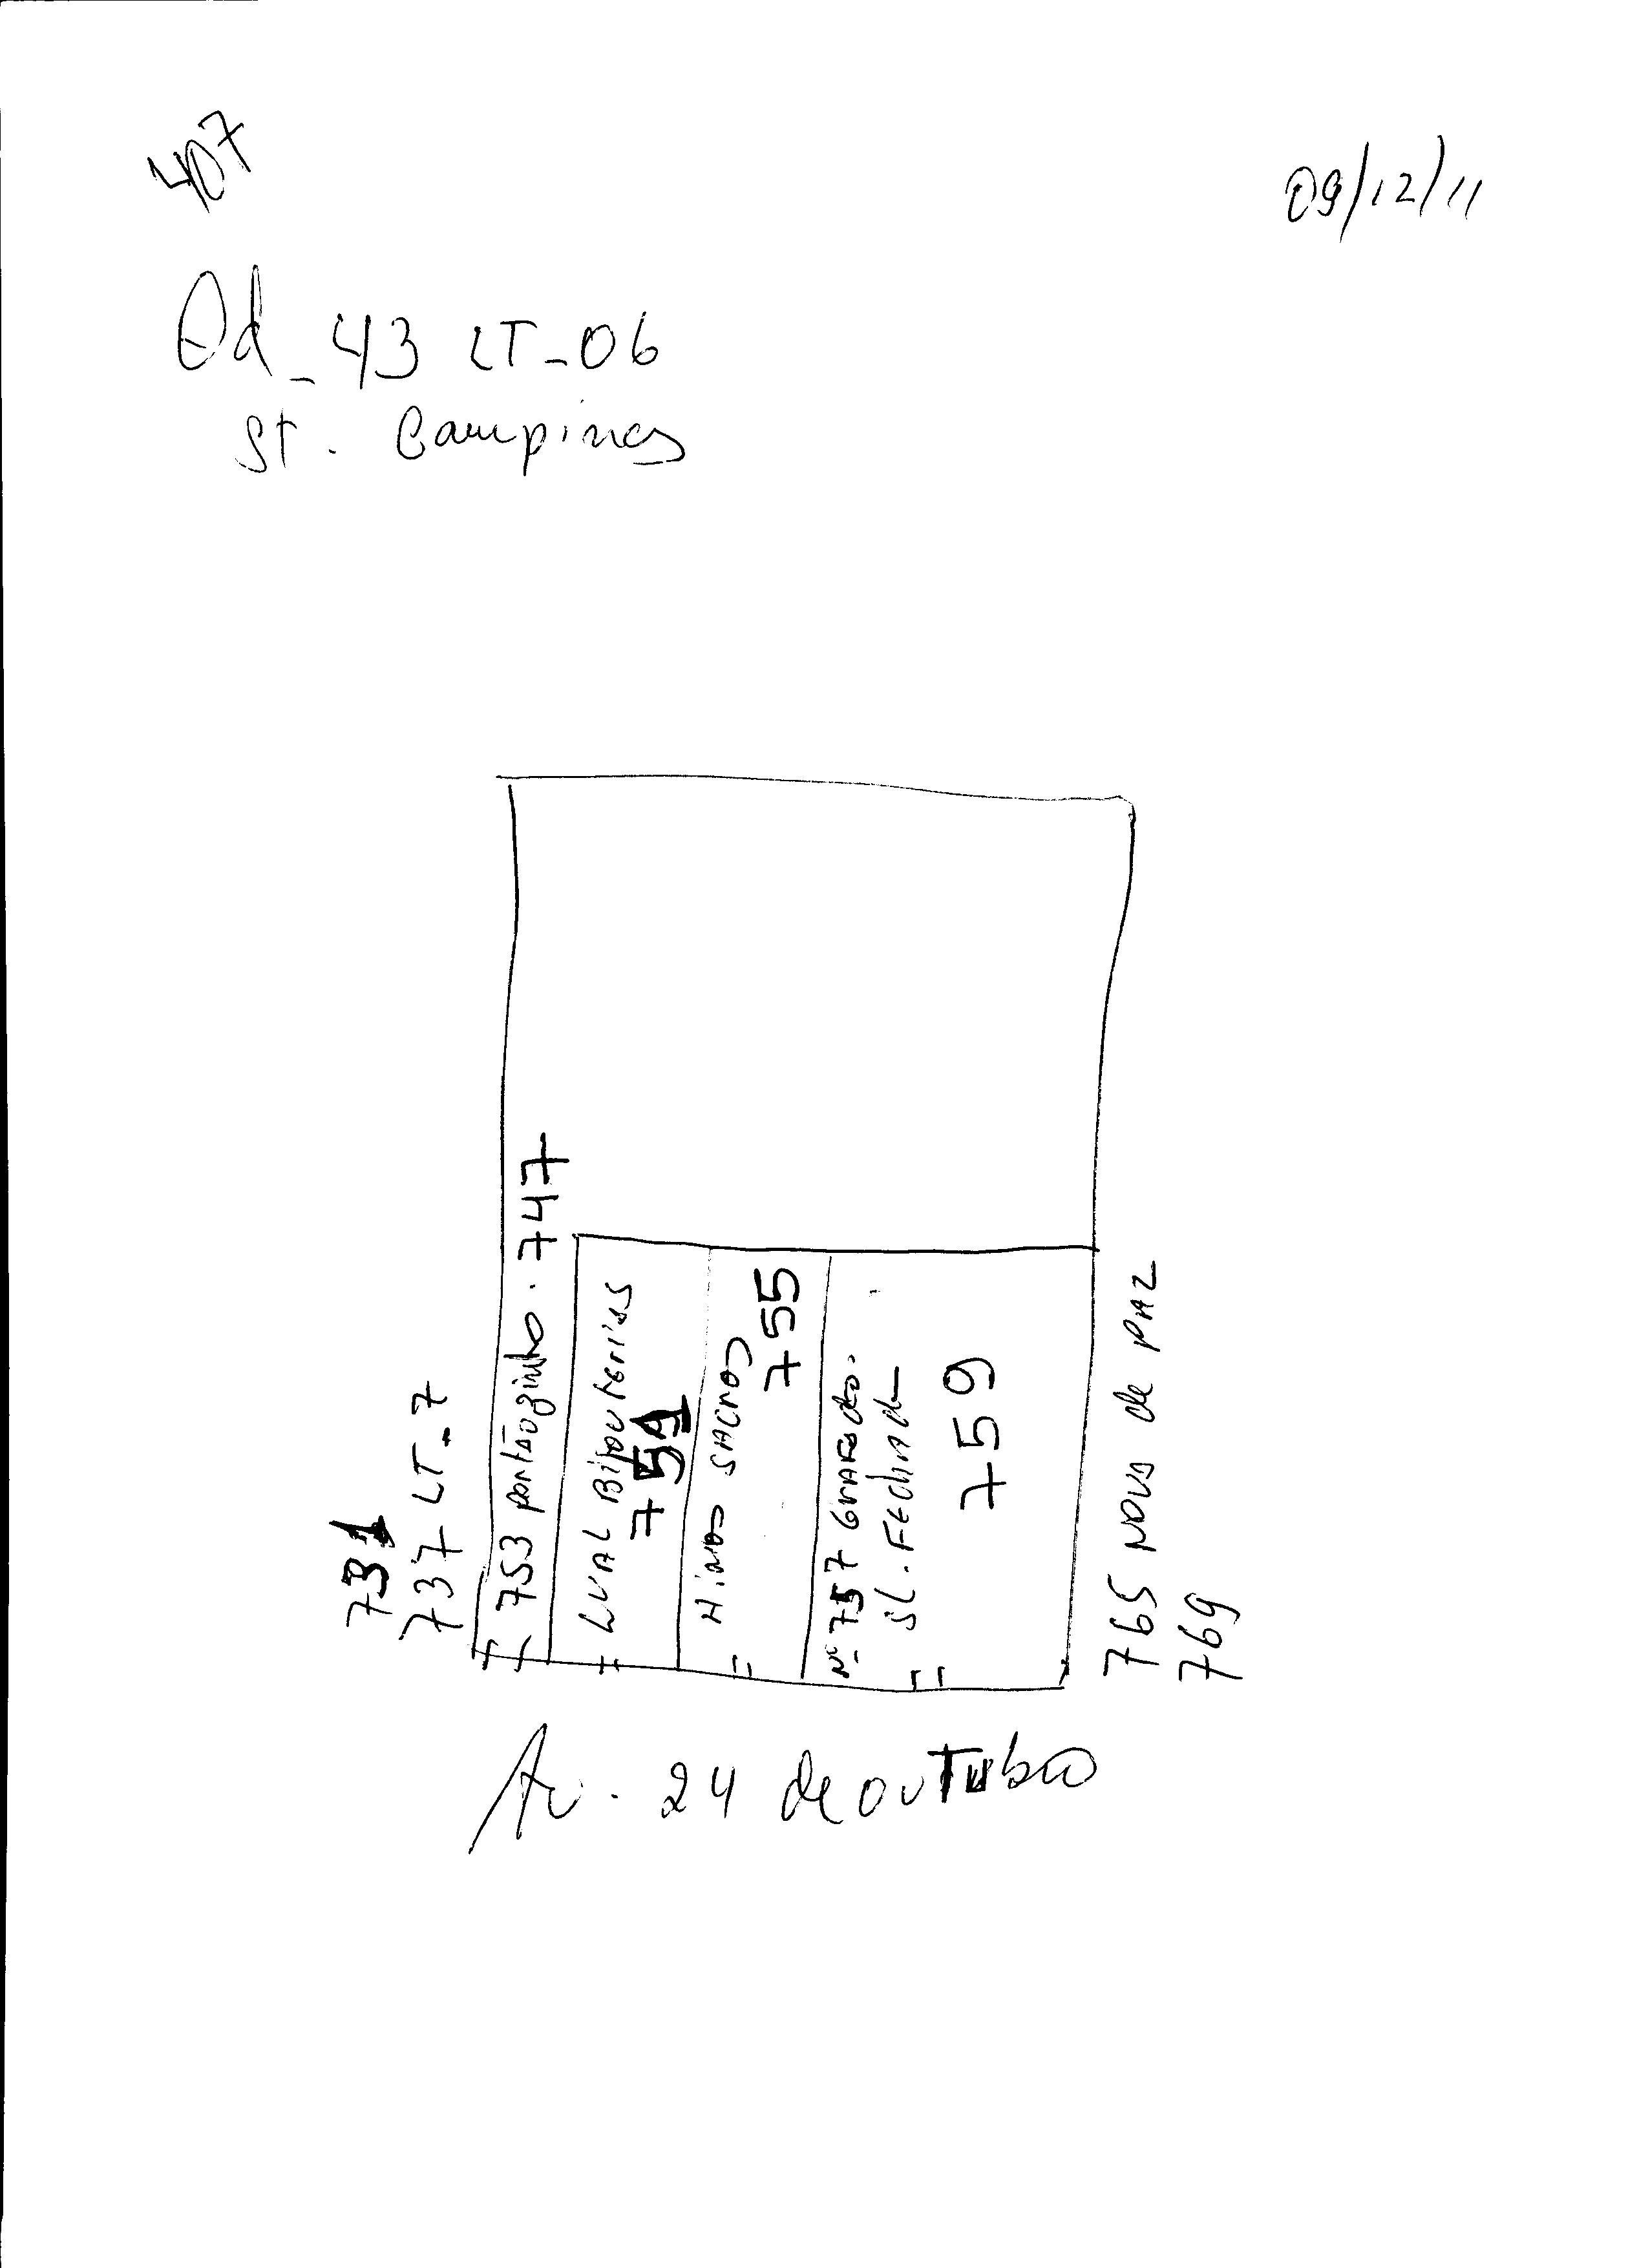 407
09/12/11
Qd_43 LT_06
St. Campinas
731
737 LT_7
753 portãozinho. 747
LUAL Bijouterias
751
Hinos SACROS
755
Nº 757 GUARDADO.
SL. FEchada
759
765 NOVA de PAZ
769
Av. 24 de ouTubro